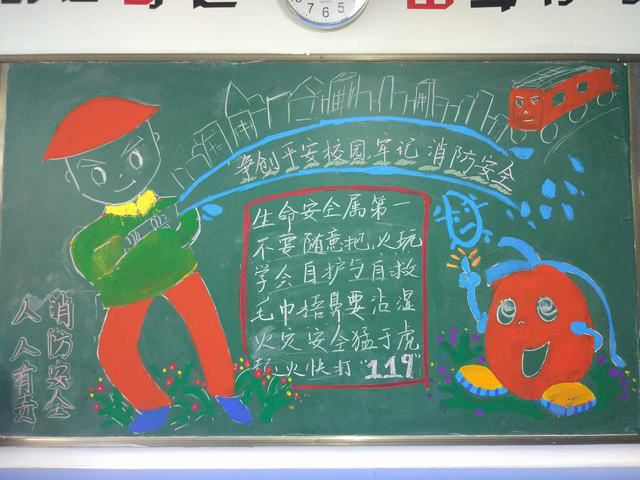 争创平安校园牢记消防安全
生命安全属第一
不要随意把火玩
学会自护与自救
毛巾捂鼻要沾湿
火灾安全猛于虎
火快打“119”
消防安全
人人有责
7 6 5